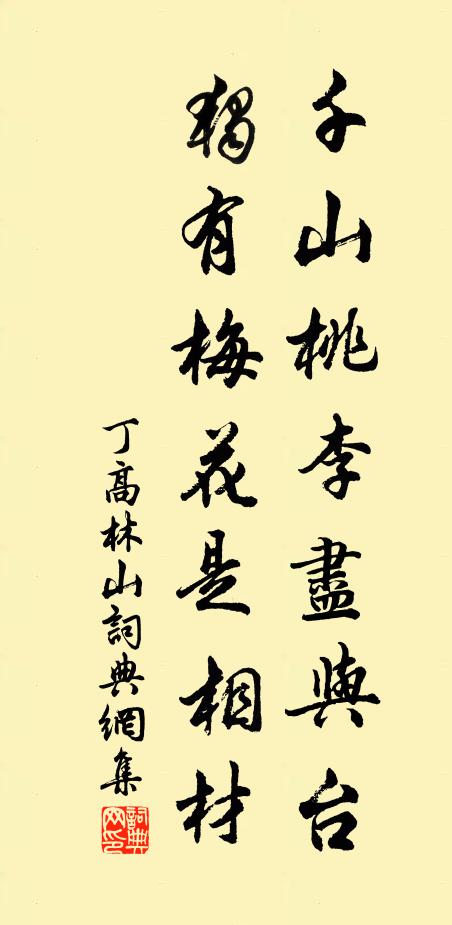 千山桃李盡輿台
獨有梅花是相材
丁高林山詞典網集
詞典網印